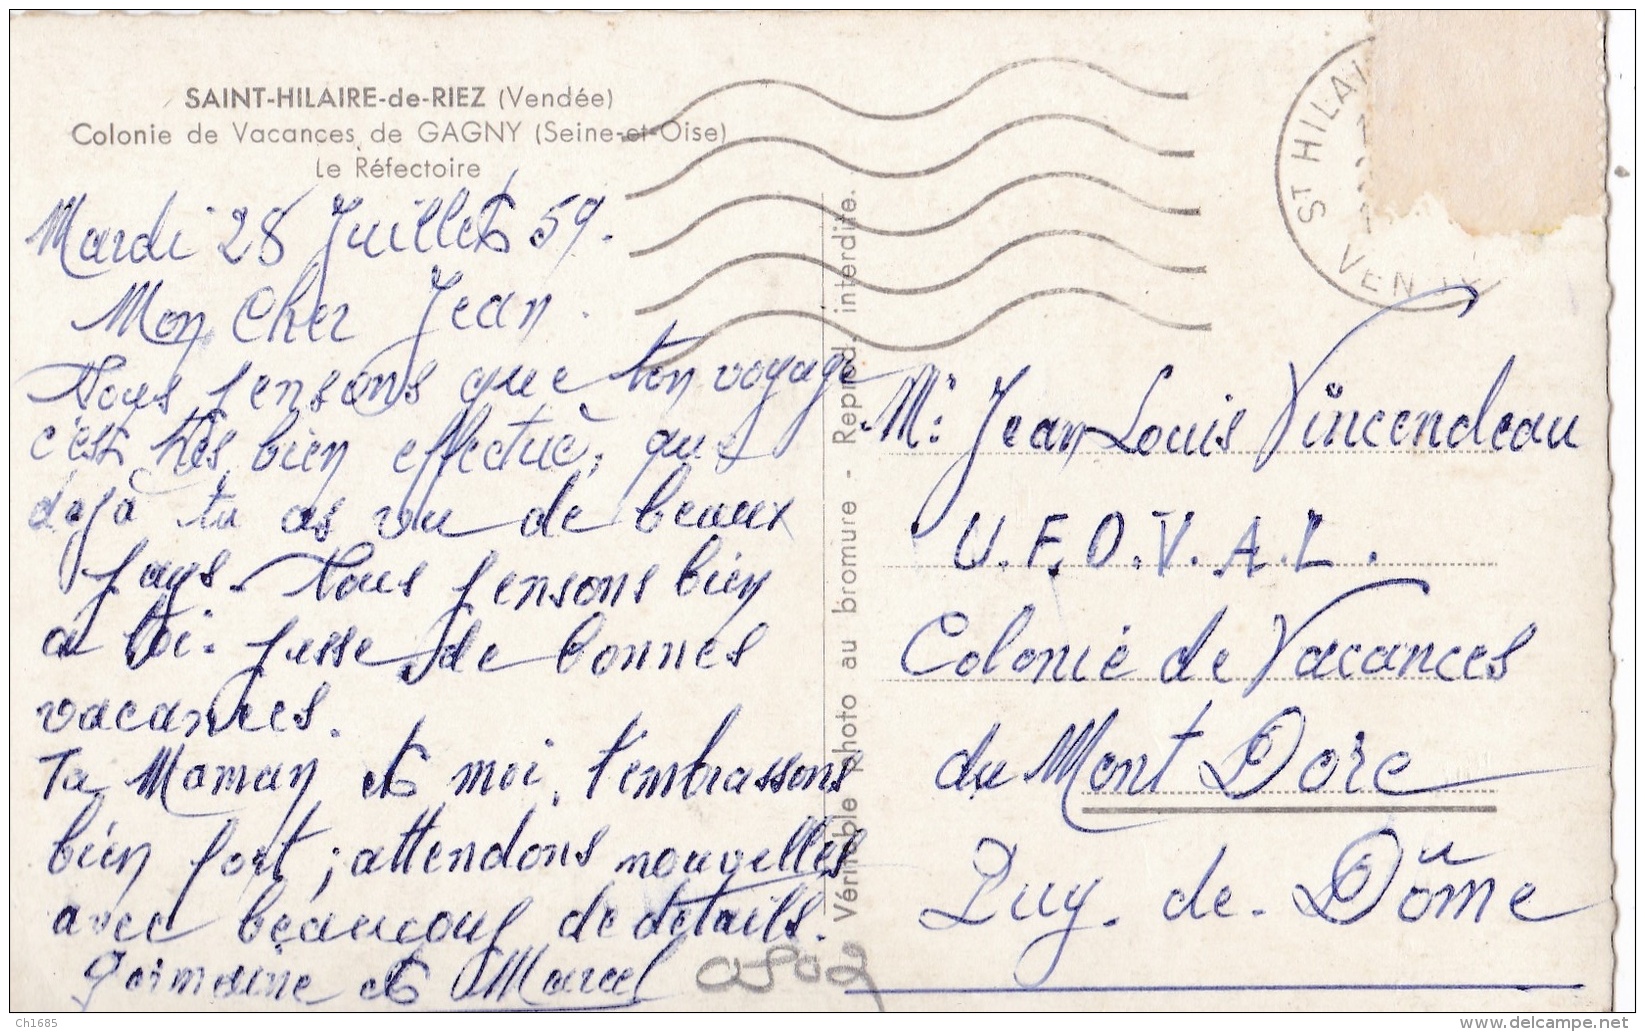 SAINT-HILAIRE-de-RIEZ (Vendée)
Colonie de Vacances de GAGNY (Seine-et-Oise)
Le Réfectoire
Mardi 28 Juillet 59.
Mon Cher Jean.
Nous pensons que ton voyage
c'est très bien effectué, que
dejà tu as vu de beaux
pays. Nous pensons bien
a toi. passe de bonnes
vacances.
Ta Maman et moi, t'embrassons
bien fort; attendons nouvelles
avec beaucoup de details.
Germaine et Marcel
Véritable Photo au bromure - Reprod. interdite.
ST HILAI
VEN
Mr: Jean Louis Vincendeau
U.F.O.V.A.L.
Colonie de Vacances
du Mont Dore
Puy. de. Dôme
Ch1685
www.delcampe.net